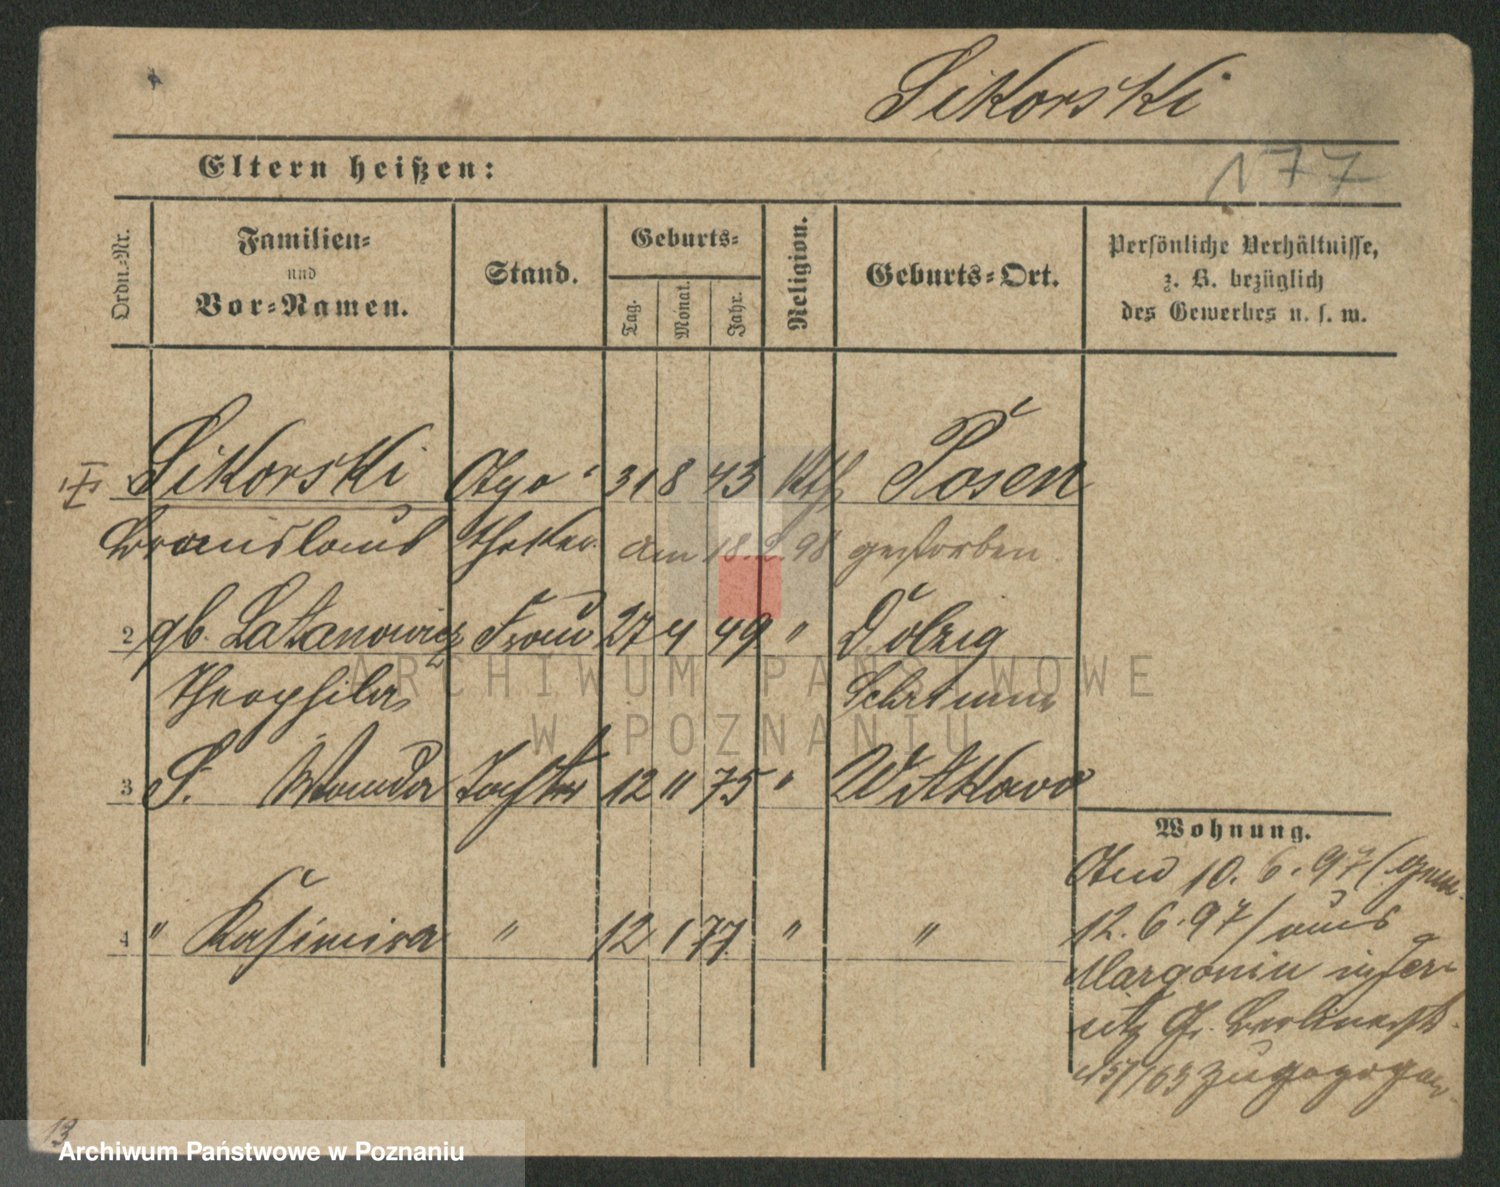 Sikorski
Eltern heißen:
177
Ordn.-Nr.
Familien-
und
Vor-Namen.
Stand.
Geburts-
Tag.
Monat.
Jahr.
Religion.
Geburts-Ort.
Persönliche Verhältnisse,
z. B. bezüglich
des Gewerbes u. s. w.
Sikorski Apo- 31 8 43 Kth Posen
Bronislaus theker. am 18. 2. 98 gestorben
2 gb. Latanowicz Frau 27 4 49 " Dolzig
Theophila Schrimm
3 S. Wanda Tochter 12 11 75 " Witkowo
4 " Kasimira " 12 1 77. " "
Wohnung.
10. 6. 97 / gem.
12. 6. 97 / aus
Margonin
Gr. Berlinerstr.
zugezogen
13
ARCHIWUM PAŃSTWOWE
W POZNANIU
Archiwum Państwowe w Poznaniu